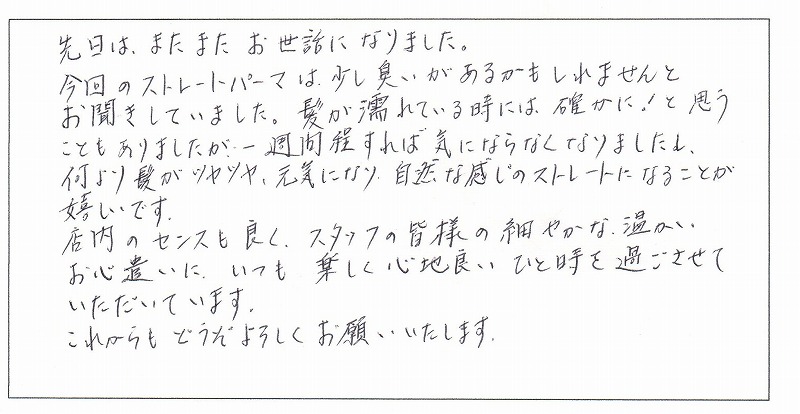 先日は、またまた お世話に なりました。
今回のストレートパーマは、少し臭いがあるかもしれませんと
お聞きしていました。髪が濡れている時には、確かに！と思う
こともありましたが、一週間程すれば 気にならなくなりましたし、
何より髪がツヤツヤ、元気になり、自然な感じのストレートになることが
嬉しいです。
店内のセンスも良く、スタッフの皆様の細やかな、温かい
お心遣いに、いつも 楽しく心地良い ひと時を過ごさせて
いただいています。
これからも どうぞよろしくお願いいたします。